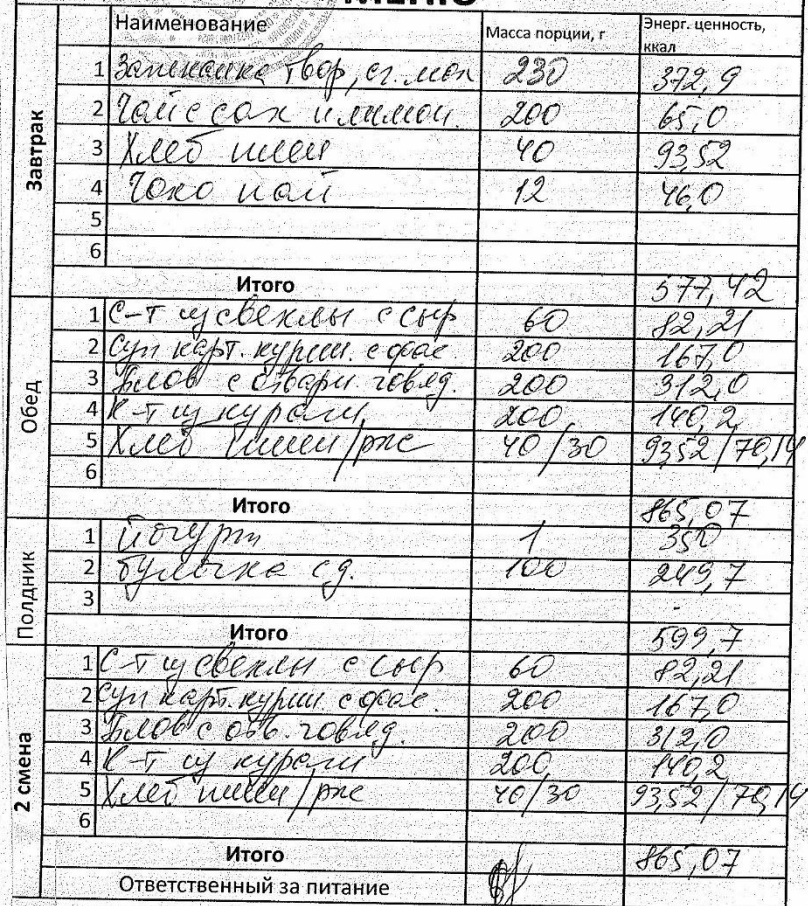 МЕНЮ
Наименование Масса порции, г Энерг. ценность, ккал
Завтрак
1 Запеканка твор, сг. мол 230 372,9
2 Чай с сах и лимон. 200 65,0
3 Хлеб пшен 40 93,52
4 Чоко пай 12 46,0
5
6
Итого 577,42
Обед
1 С-т из свеклы с сыр 60 82,21
2 Суп карт. курин. с фас 200 167,0
3 Плов с отварн. говяд. 200 312,0
4 К-т из кураги 200 140,2
5 Хлеб пшен/рж 40/30 93,52/70,14
6
Итого 865,07
Полдник
1 Йогурт 1 350
2 булочка сд. 100 249,7
3
Итого 599,7
2 смена
1 С-т из свеклы с сыр 60 82,21
2 Суп карт. курин. с фас. 200 167,0
3 Плов с отв. говяд. 200 312,0
4 К-т из кураги 200 140,2
5 Хлеб пшен/рж 40/30 93,52/70,14
6
Итого 865,07
Ответственный за питание